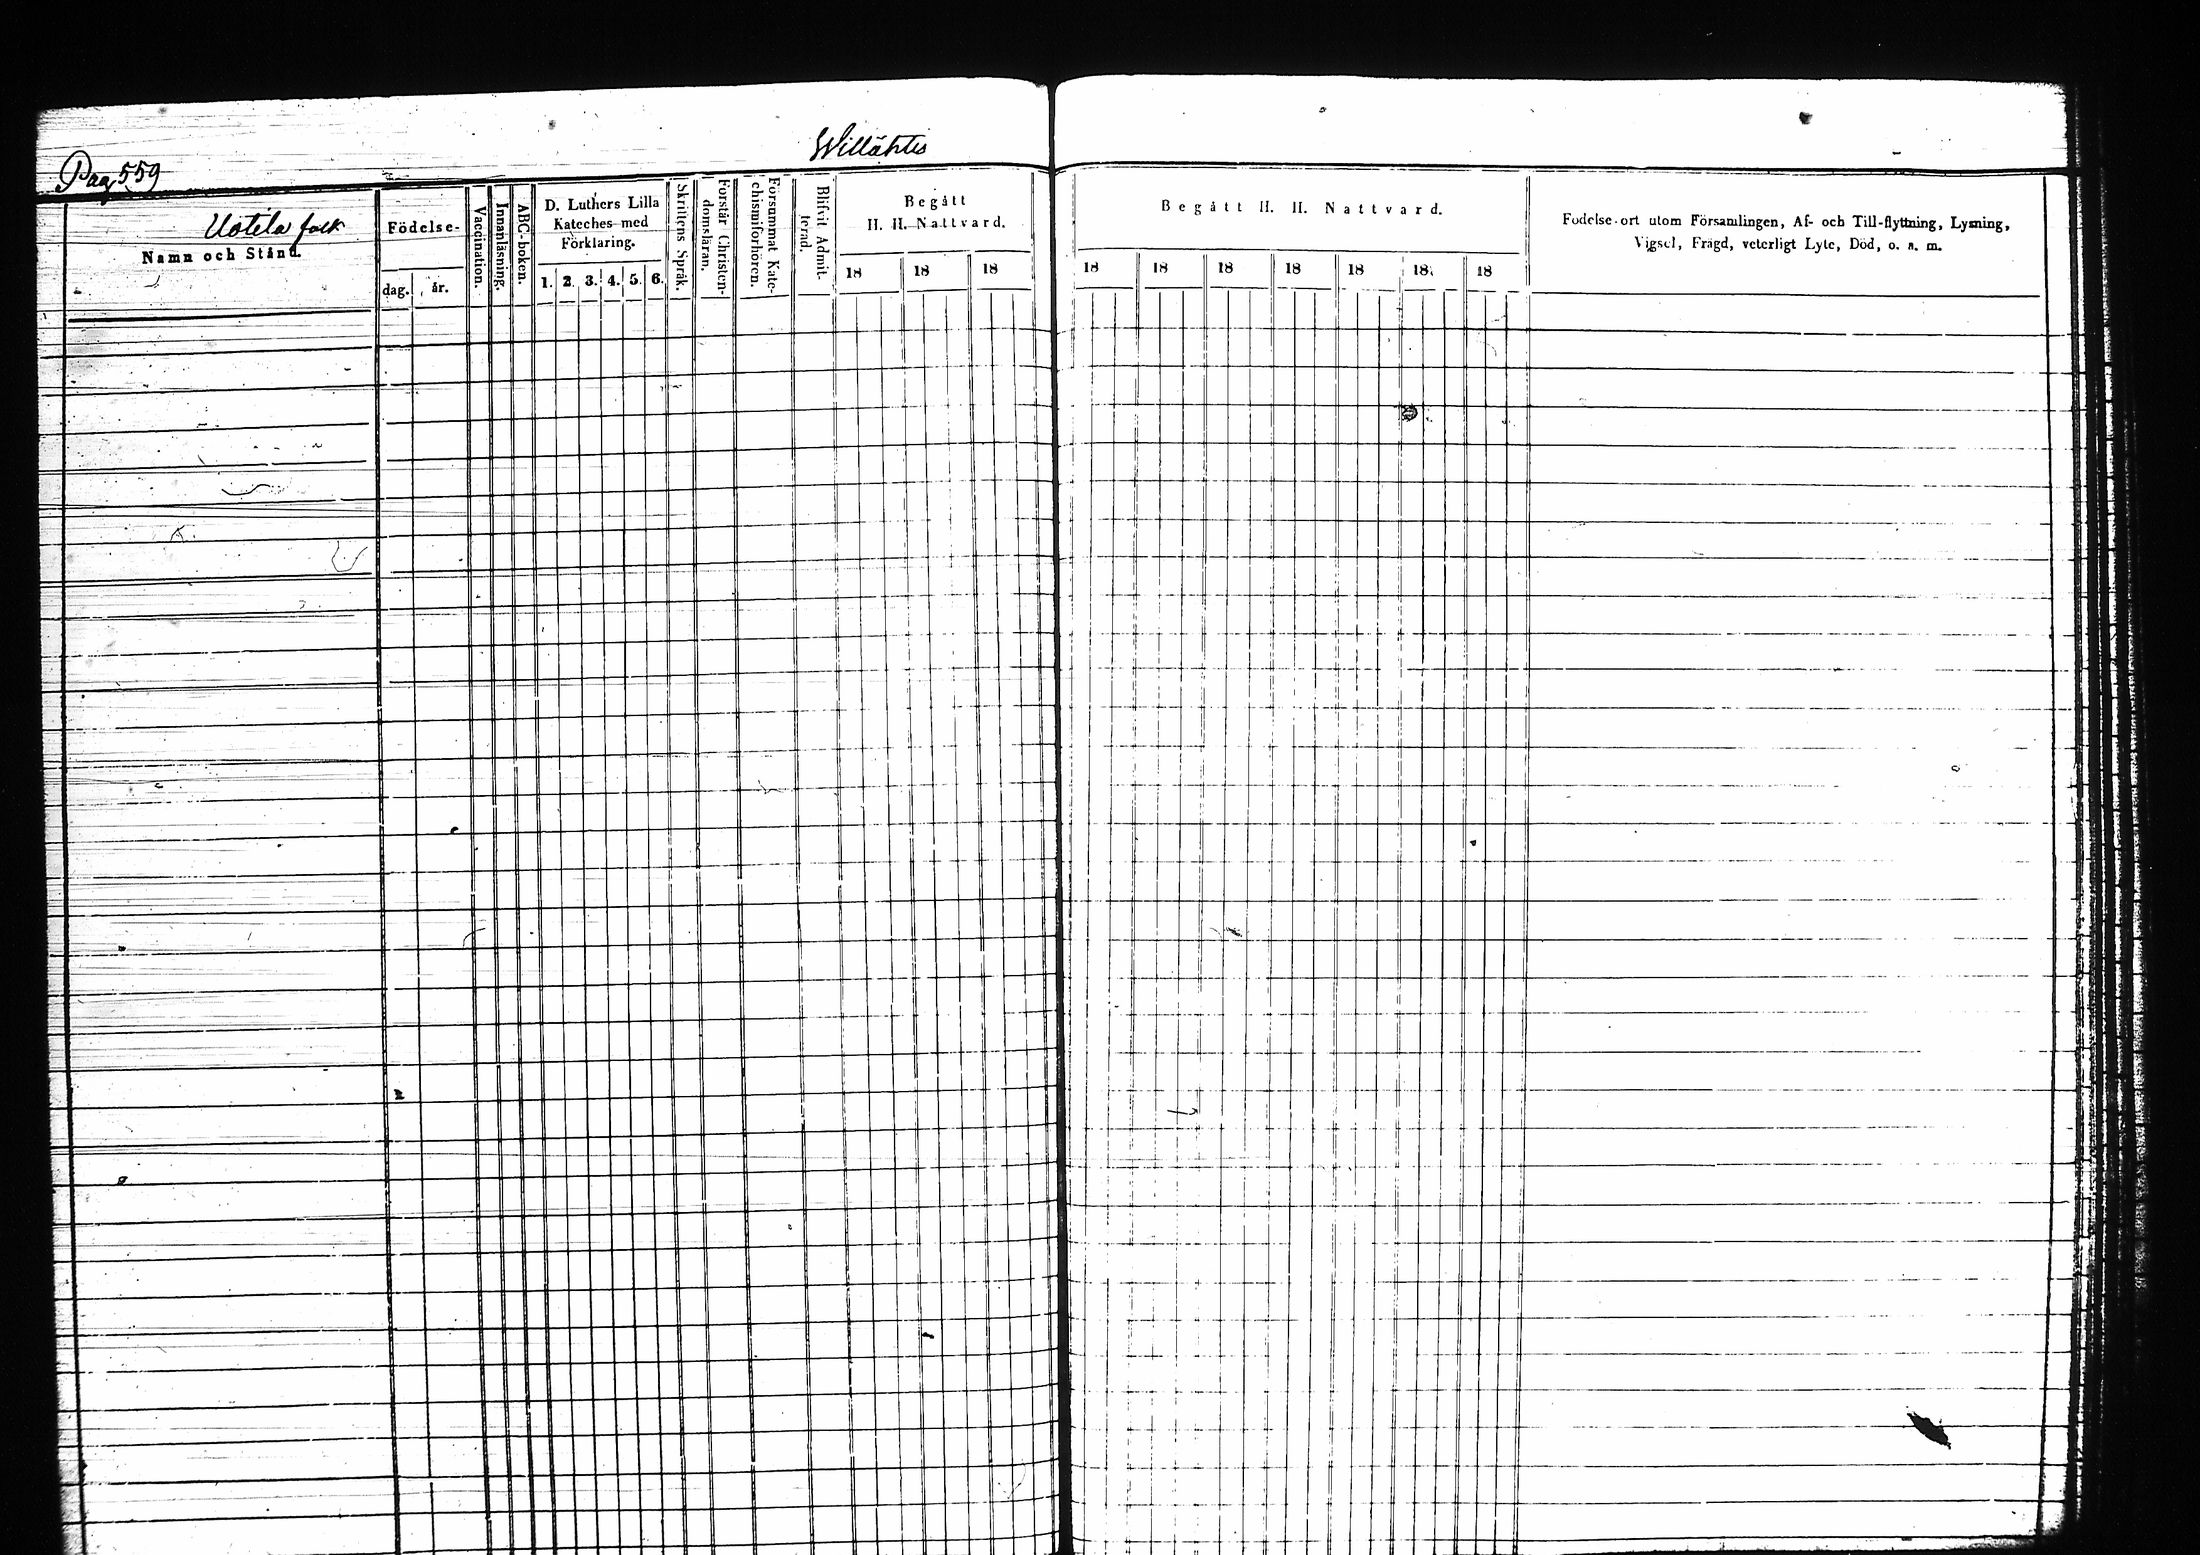 Willähtis
Pag 559
Uotila folk
Namn och Stånd.
Födelse-
dag.
år.
Vaccination.
Innanläsning.
ABC-boken.
D. Luthers Lilla
Kateches med
Förklaring.
1. 2. 3. 4. 5. 6.
Skriftens Språk.
Förstår Christen-
domsläran.
Försummat Kate-
chismiförhören.
Blifvit Admit-
terad.
Begått
H. H. Nattvard.
18 18 18
Begått H. H. Nattvard.
18 18 18 18 18 18 18
Födelse-ort utom Församlingen, Af- och Till-flyttning, Lysning,
Vigsel, Frägd, veterligt Lyte, Död, o. s. m.